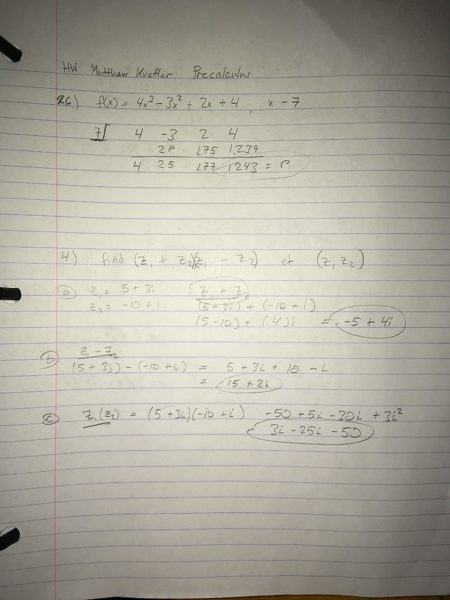 HW Matthew Precalculus
2c) f(x) = 4x³ - 3x² + 2x + 4, x - 7
7 4 -3 2 4
28 175 1,239
4 25 177 1243 =
4) find (z₁ + z₂)(z₁ - z₂) (z₁ z₂)
a z₁ = 5 + 3i z₁ + z₂
z₂ = -10 + i (5+3i) + (-10 + i)
(5-10) + (4)i = -5 + 4i
b z₁ - z₂
(5 + 3i) - (-10 + i) = 5 + 3i + 10 - i
= 15 + 2i
c z₁(z₂) = (5 + 3i)(-10 + i) -50 + 5i - 30i + 3i²
3i - 25i - 50